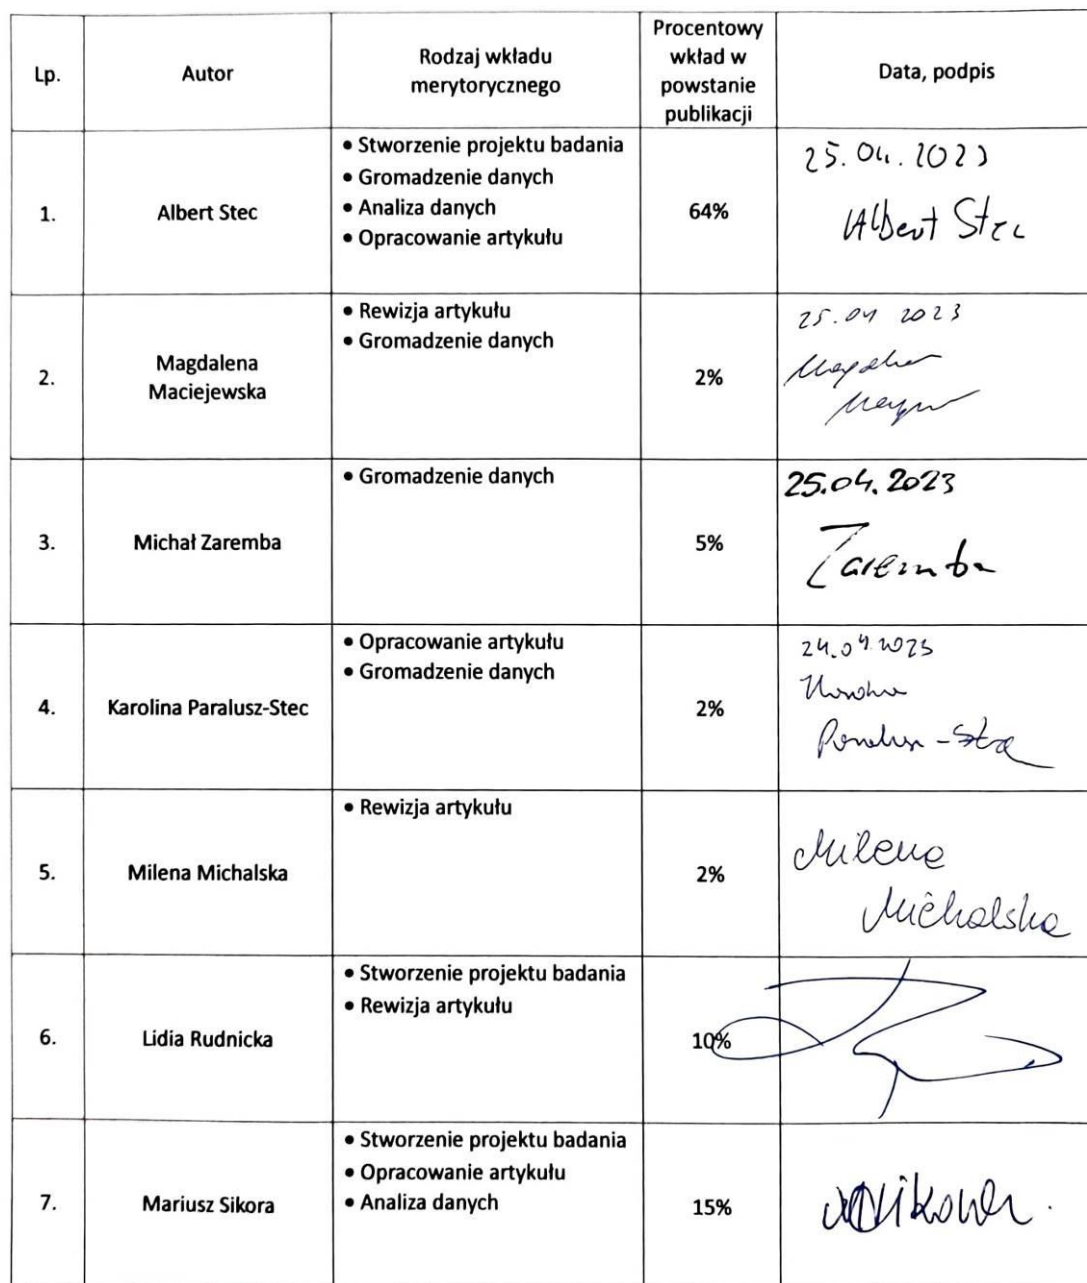 Lp.
Autor
Rodzaj wkładu
merytorycznego
Procentowy
wkład w
powstanie
publikacji
Data, podpis
1.
Albert Stec
• Stworzenie projektu badania
• Gromadzenie danych
• Analiza danych
• Opracowanie artykułu
64%
25.04.2023
Albert Stec
2.
Magdalena
Maciejewska
• Rewizja artykułu
• Gromadzenie danych
2%
25.04 2023
3.
Michał Zaremba
• Gromadzenie danych
5%
25.04.2023
Zaremba
4.
Karolina Paralusz-Stec
• Opracowanie artykułu
• Gromadzenie danych
2%
5.
Milena Michalska
• Rewizja artykułu
2%
Milena
Michalska
6.
Lidia Rudnicka
• Stworzenie projektu badania
• Rewizja artykułu
10%
7.
Mariusz Sikora
• Stworzenie projektu badania
• Opracowanie artykułu
• Analiza danych
15%